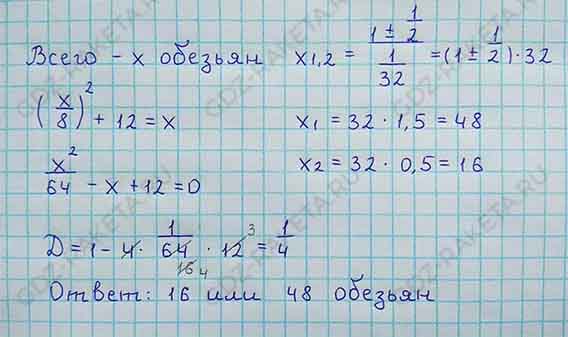 Всего - x обезьян
(x/8)² + 12 = x
x²/64 - x + 12 = 0
D = 1 - 4 · 1/64 · 12 = 1/4
16 4 3
x1,2 = (1 ± 1/2)/(1/32) = (1 ± 1/2) · 32
x1 = 32 · 1,5 = 48
x2 = 32 · 0,5 = 16
Ответ: 16 или 48 обезьян
GDZ-RAKETA.RU